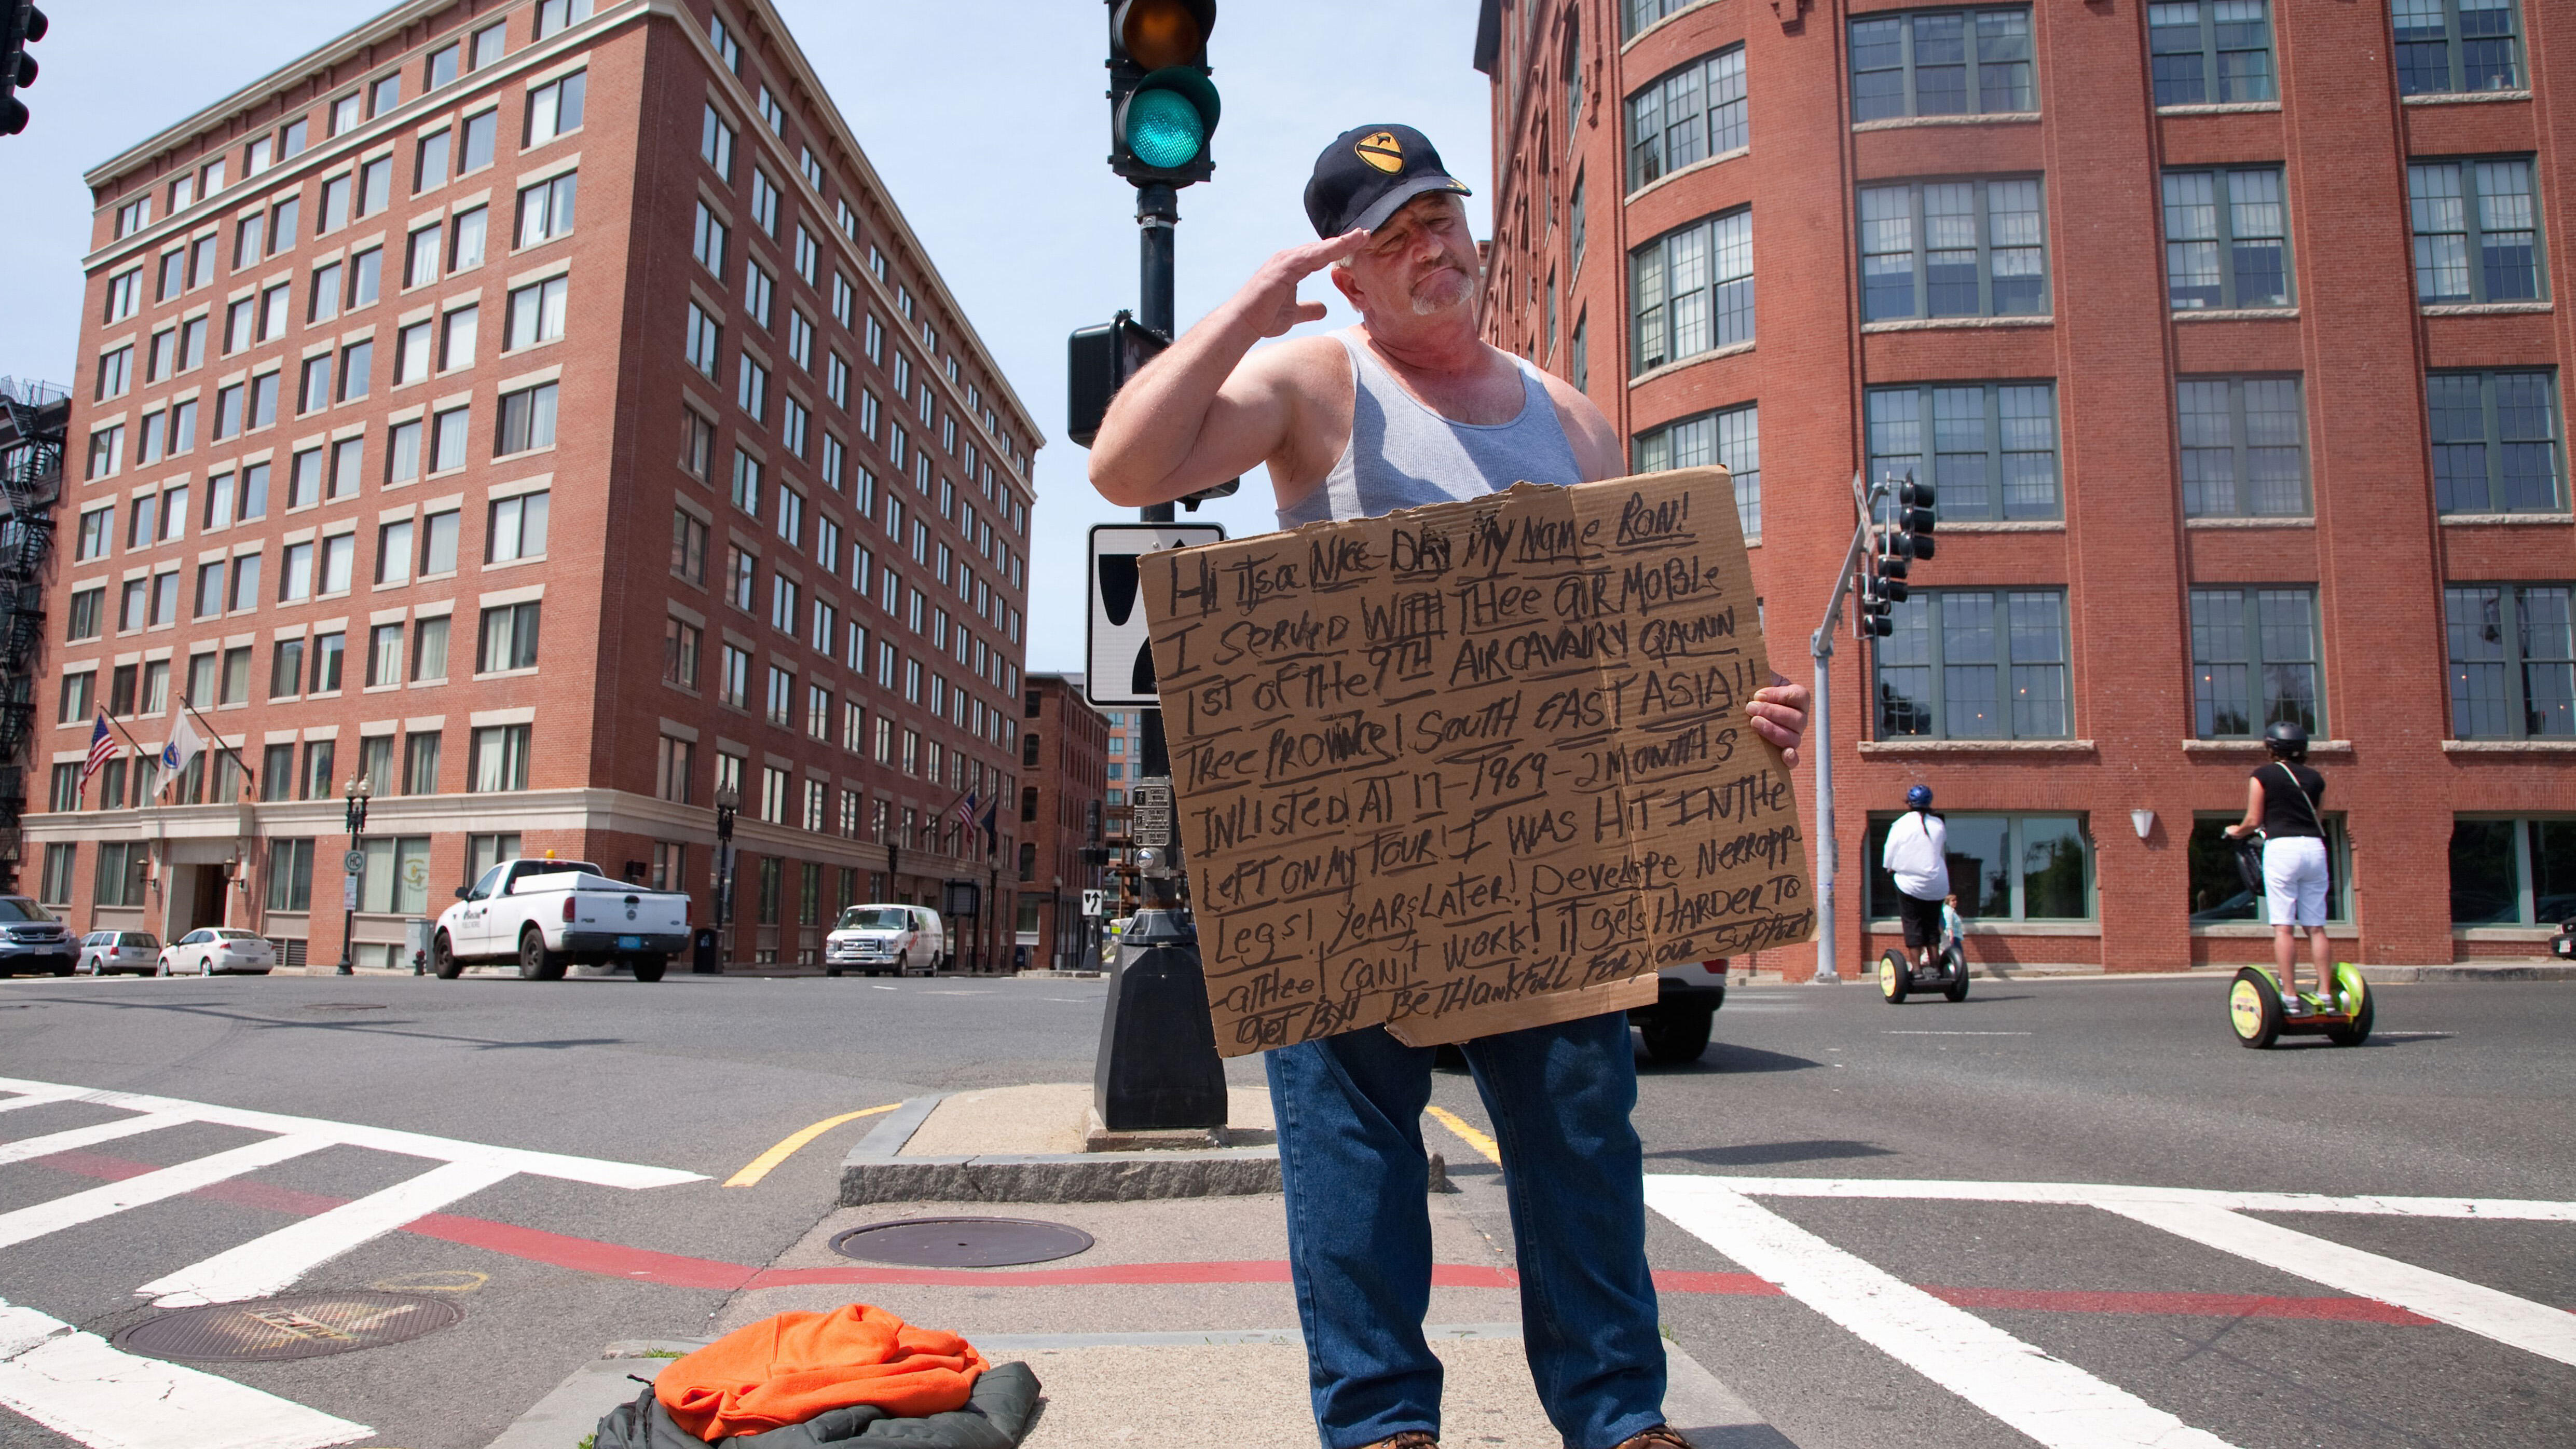 Hi itsa Nice-DAy My Name Ron!
I SeRveD WITH THee aiR MoBLe
1ST oF THe 9TH AIR CAVAlRy QAUNN
TRee PROViNCe! SouTH EAST ASIA!!
INLiSTeD! AT 17-1969-2 MONTHS
LeFT ON My TOUR! I WAS HiT INTHe
Legs! yeARs LATeR! Develope NeRRopp
aTHee! CAN'T WORK! iT geTs HARDeR To
geT By!! Be THankFull FoR youR SuppoRT